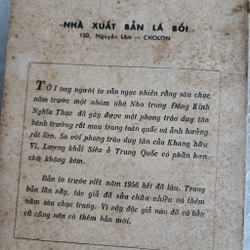 NHÀ XUẤT BẢN LÁ BỐI
120, Nguyễn Lâm — CHOLON
TỚI nay người ta vẫn ngạc nhiên rằng sáu chục
năm trước một nhóm nhà Nho trong Đông Kinh
Nghĩa Thục đã gây được một phong trào duy tân
bành trướng rất mau trong toàn quốc và ảnh hưởng
rất lớn. So với phong trào duy tân của Khang hữu
Vi, Lương khải Siêu ở Trung Quốc có phần hơn
chức không kém.
Bản in trước viết năm 1956 hết đã lâu. Trong
bản lần nầy, tác giả đã sửa chữa nhiều và thêm
năm sáu chục trang. Vì vậy độc giả nào đã có bản
cũ cũng nên có thêm bản mới.